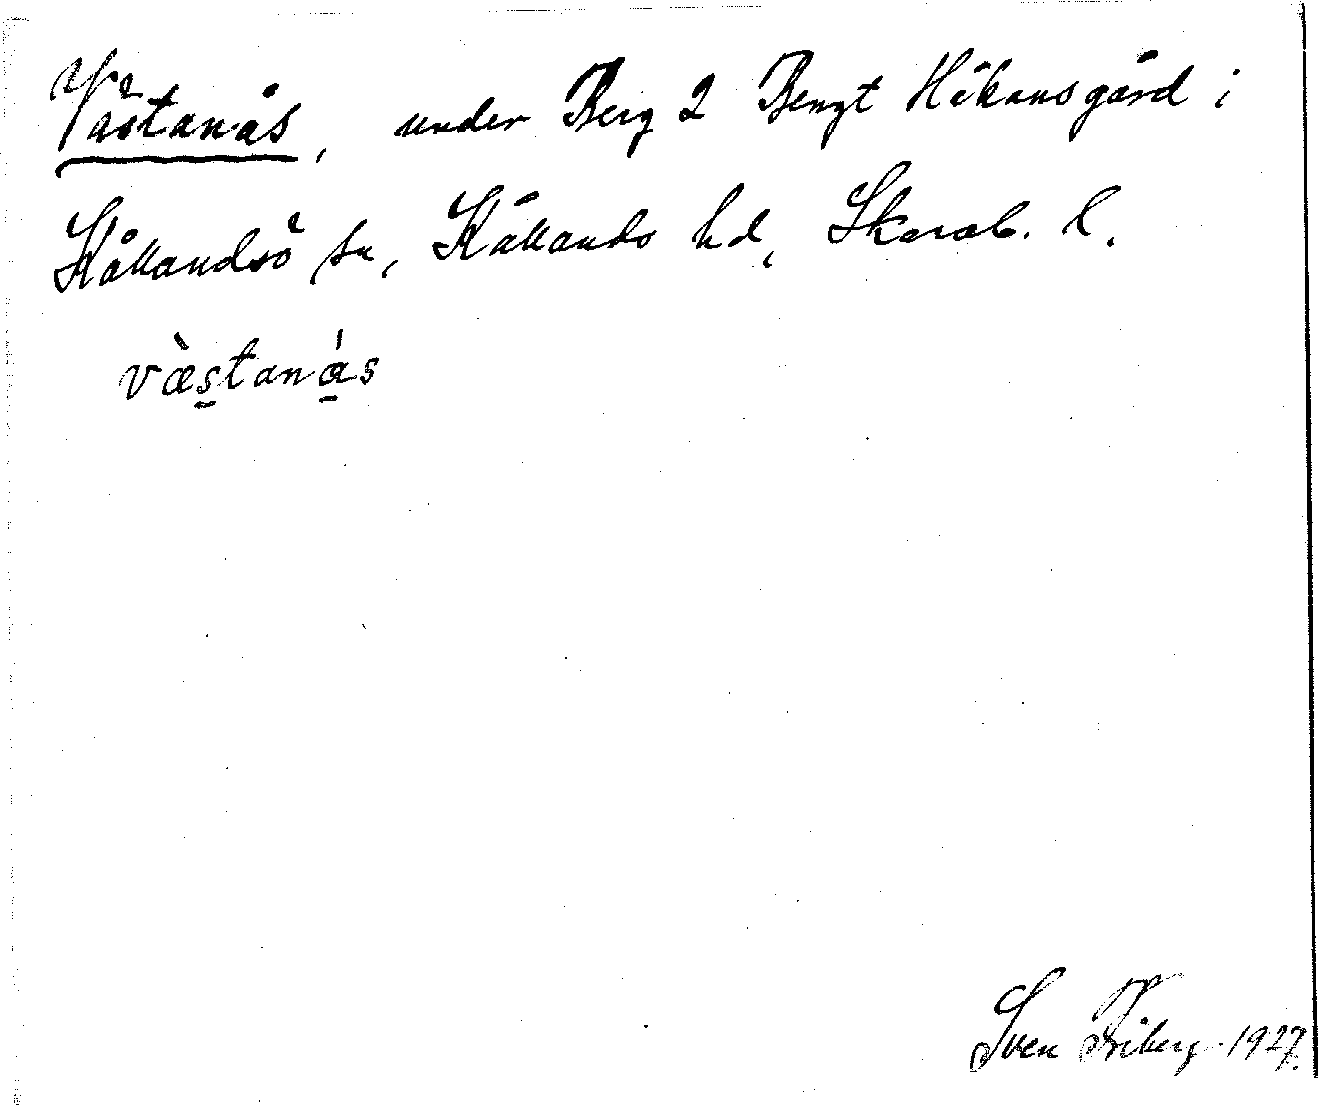 Västanås, under Berg 2 Bengt Håkansgård i
Kållandsö sn, Kållands hd, Skarab. l.
væstanås
Sven Friberg 1927.